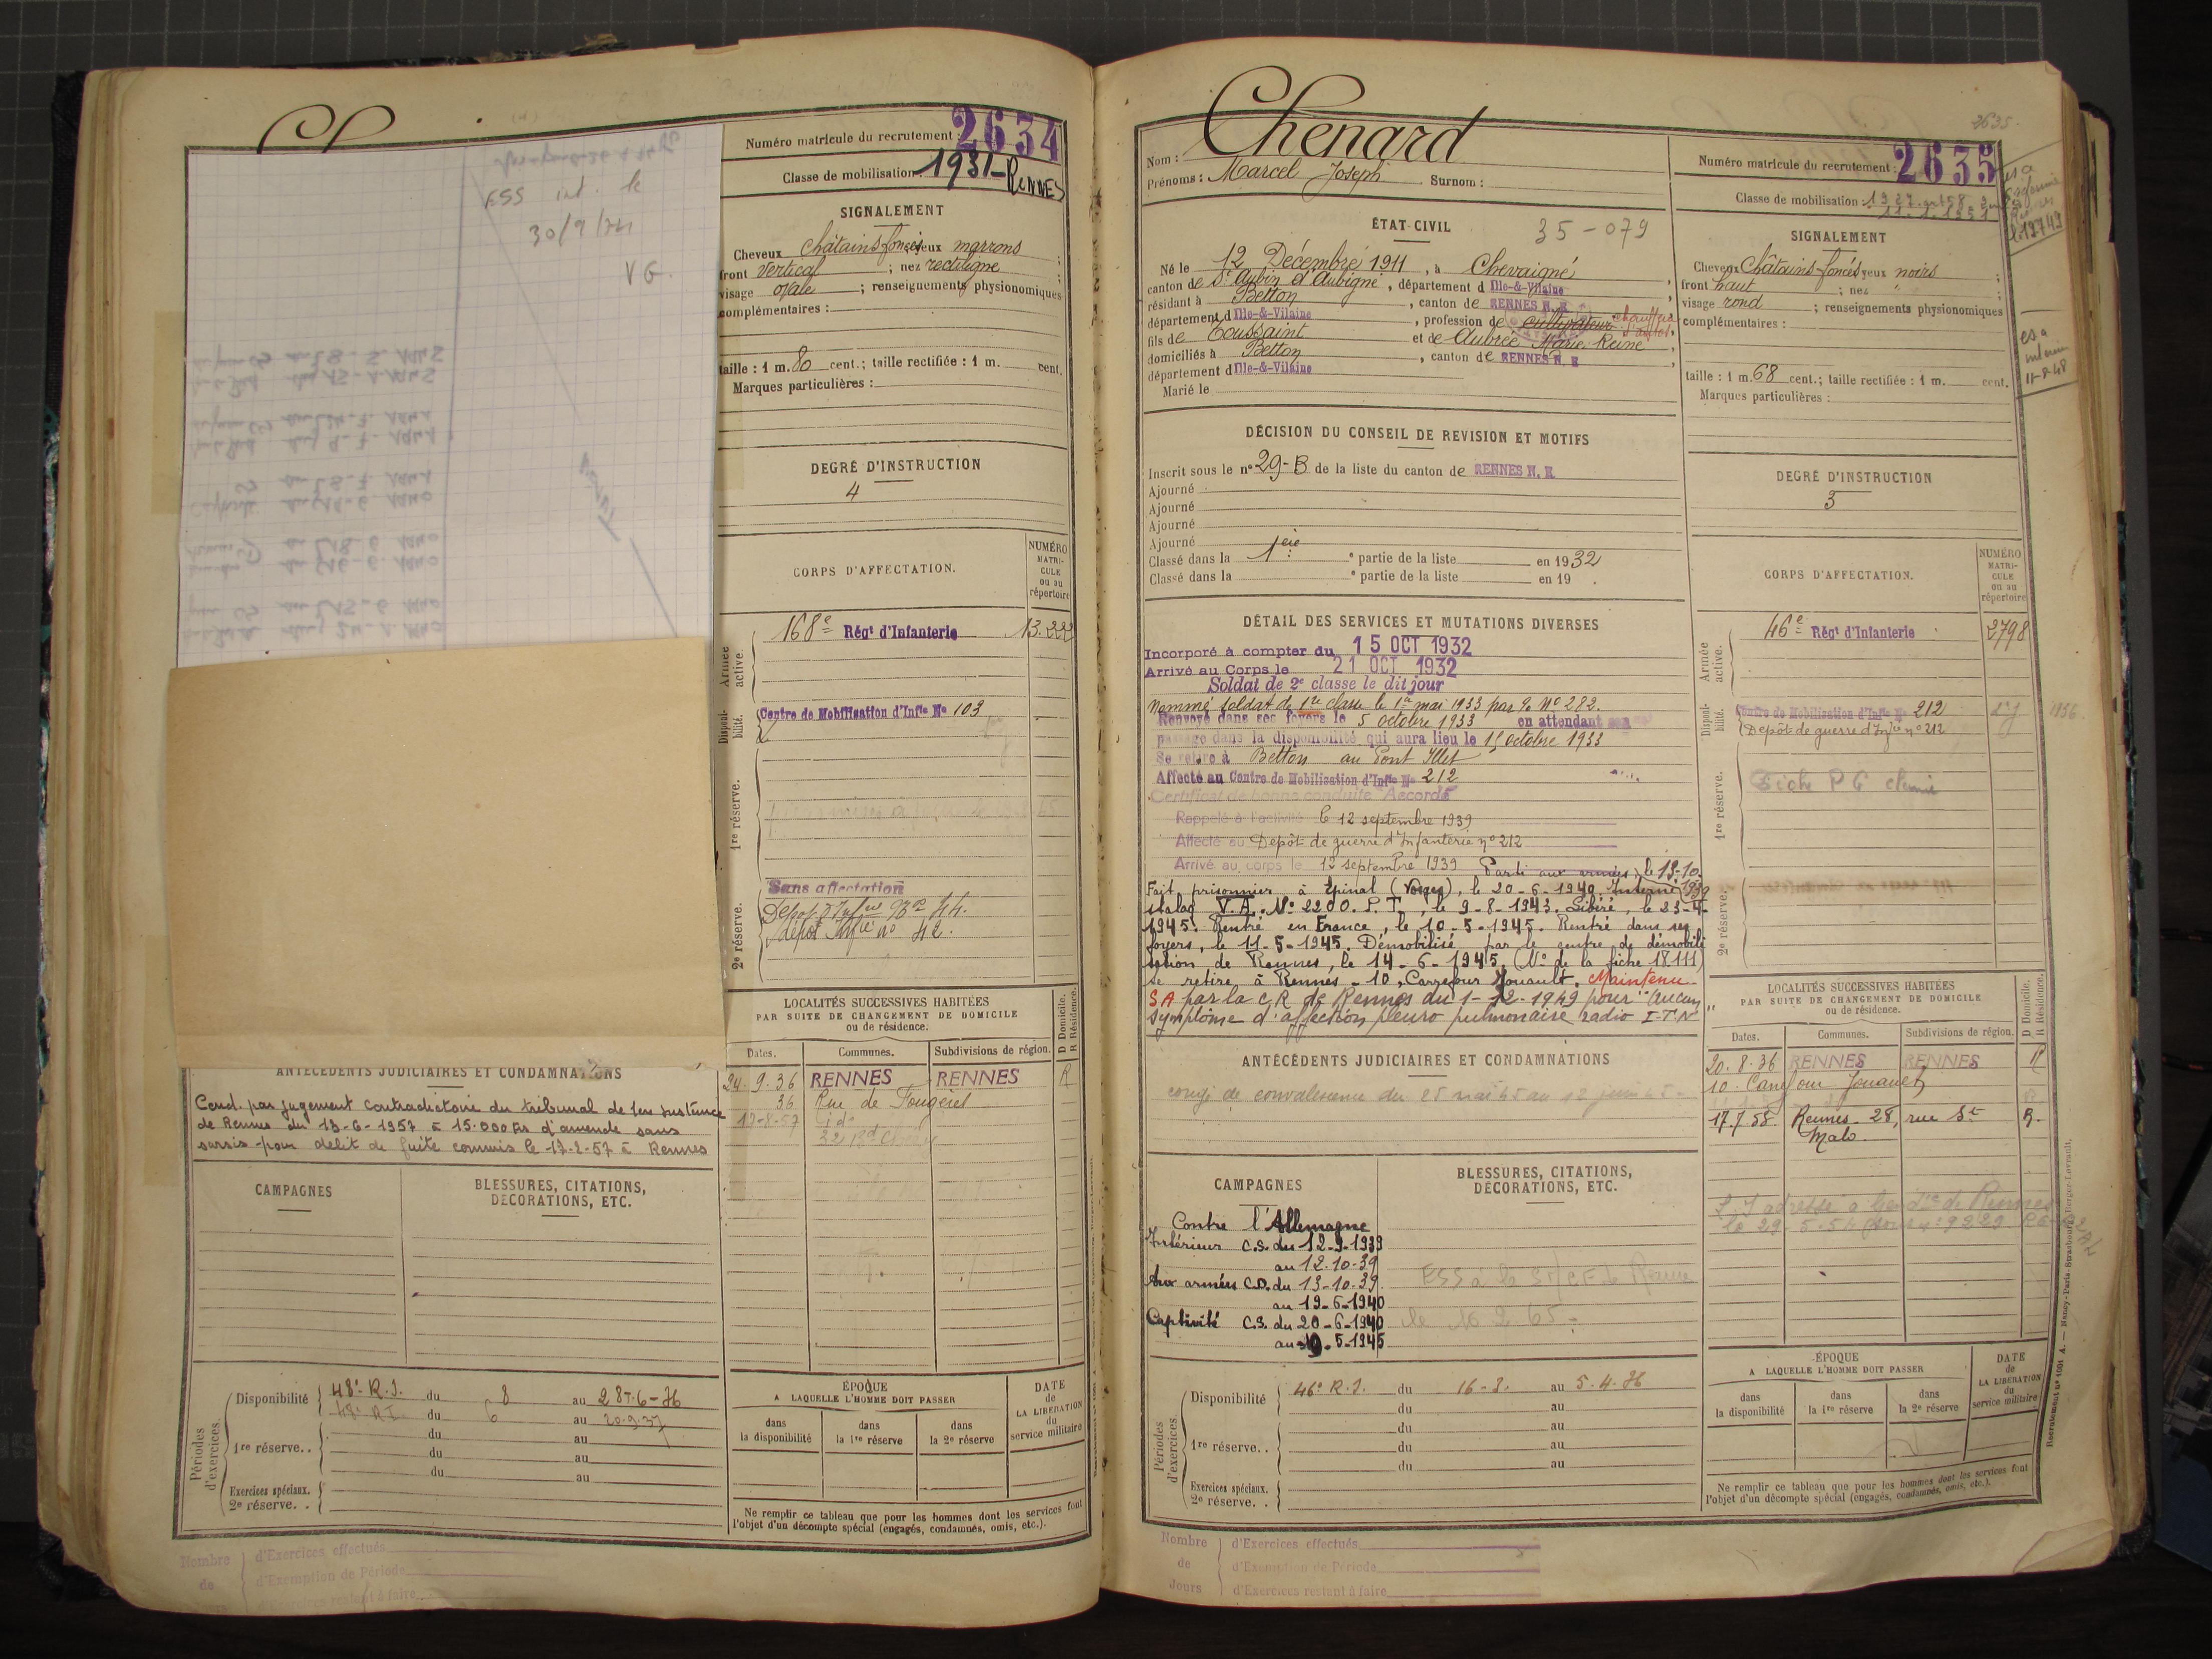 Numéro matricule du recrutement : 2634
Classe de mobilisation : 1931 - RENNES
ESS int. le
30/9/
VG
SIGNALEMENT
Cheveux châtains foncés yeux marrons ;
front vertical ; nez rectiligne ;
visage ovale ; renseignements physionomiques
complémentaires :
taille : 1 m. 80 cent.; taille rectifiée : 1 m. cent.
Marques particulières :
DEGRÉ D'INSTRUCTION
4
CORPS D'AFFECTATION.
NUMÉRO MATRI-CULE ou au répertoire
Armée active.
168e Régt d'Infanterie 13.222
Disponi-bilité.
Centre de Mobilisation d'Infie No 103
1re réserve.
2e réserve.
Sans affectation
Dépot d'Infie No 44.
dépot Infie no 42.
LOCALITÉS SUCCESSIVES HABITÉES
PAR SUITE DE CHANGEMENT DE DOMICILE
ou de résidence.
D Domicile.
R Résidence.
Dates. Communes. Subdivisions de région.
24.9.36 RENNES RENNES R
36 Rue de Fougères
ANTÉCÉDENTS JUDICIAIRES ET CONDAMNATIONS
Cond. par jugement contradictoire du tribunal de 1ère instance
de Rennes du 13-6-1957 à 15.000 frs d'amende sans
sursis pour délit de fuite commis le 17-2-57 à Rennes
CAMPAGNES
BLESSURES, CITATIONS,
DÉCORATIONS, ETC.
Périodes d'exercices.
Disponibilité 48e R.I. du 8 au 28-6-36
48e R.I. du 6 au 20.9.37
du au
1re réserve.. du au
du au
Exercices spéciaux.
2e réserve. .
ÉPOQUE
A LAQUELLE L'HOMME DOIT PASSER
DATE de LA LIBÉRATION du service militaire
dans la disponibilité
dans la 1re réserve
dans la 2e réserve
Ne remplir ce tableau que pour les hommes dont les services font
l'objet d'un décompte spécial (engagés, condamnés, omis, etc.).
Nombre de Jours
d'Exercices effectués
d'Exemption de Période
d'Exercices restant à faire
2635
Nom : Chenard
Prénoms : Marcel Joseph Surnom :
Numéro matricule du recrutement : 2635
Classe de mobilisation : 1927
ÉTAT CIVIL 35-079
Né le 12 Décembre 1911, à Chevaigné,
canton de St Aubin d'Aubigné, département d Ille-&-Vilaine,
résidant à Betton, canton de RENNES N. E
département d Ille-&-Vilaine, profession de cultivateur chauffeur d'autos,
fils de Toussaint et de Aubrée Marie Reine,
domiciliés à Betton, canton de RENNES N. E,
département d Ille-&-Vilaine
Marié le
SIGNALEMENT
Cheveux Châtains foncés yeux noirs ;
front haut ; nez " ;
visage rond ; renseignements physionomiques
complémentaires :
taille : 1 m. 68 cent.; taille rectifiée : 1 m. cent.
Marques particulières :
11-8-48
DÉCISION DU CONSEIL DE REVISION ET MOTIFS
Inscrit sous le no 29-B de la liste du canton de RENNES N. E
Ajourné
Ajourné
Ajourné
Ajourné
Classé dans la 1ère partie de la liste en 1932
Classé dans la e partie de la liste en 19 .
DEGRÉ D'INSTRUCTION
3
DÉTAIL DES SERVICES ET MUTATIONS DIVERSES
Incorporé à compter du 15 OCT 1932
Arrivé au Corps le 21 OCT 1932
Soldat de 2e classe le dit jour
Nommé soldat de 1re classe le 1er mai 1933 par O. No 282.
Renvoyé dans ses foyers le 5 octobre 1933 en attendant son
passage dans la disponibilité qui aura lieu le 15 octobre 1933
Se retire à Betton au Pont Illet
Affecté au Centre de Mobilisation d'Infie No 212
Certificat de bonne conduite Accordé
Rappelé à l'activité le 12 septembre 1939
Affecté au Dépôt de guerre d'Infanterie no 212
Arrivé au corps le 12 septembre 1939 Parti aux armées le 13-10-1939
Fait prisonnier à Epinal (Vosges), le 20-6-1940. Interné
stalag V.A. No 2200. P.T., le 9-8-1943. Libéré, le 23-4-
1945. Rentré en France, le 10-5-1945. Rentré dans ses
foyers, le 11-5-1945. Démobilisé par le centre de démobili
sation de Rennes, le 14-6-1945. (No de la fiche 18111)
Se retire à Rennes - 10, Carrefour Jouault. Maintenu
SA par la C R de Rennes du 1-12-1949 pour "Aucun
symptôme d'affection pleuro pulmonaire radio I.T.N"
CORPS D'AFFECTATION.
NUMÉRO MATRI-CULE ou au répertoire
Armée active.
46e Régt d'Infanterie 2798
Disponi-bilité.
Centre de Mobilisation d'Infie No 212
Dépôt de guerre d'Infie no 212
1936
1re réserve.
Fiche P G
2e réserve.
ANTÉCÉDENTS JUDICIAIRES ET CONDAMNATIONS
congé de convalescence du 25 mai 45 au 12 juin 45
LOCALITÉS SUCCESSIVES HABITÉES
PAR SUITE DE CHANGEMENT DE DOMICILE
ou de résidence.
D Domicile.
R Résidence.
Dates. Communes. Subdivisions de région.
20.8.36 RENNES RENNES R
10. Carrefour Jouault
17.7.58. Rennes - 28, rue St R.
Malo.
CAMPAGNES
Contre l'Allemagne
Intérieur C.S. du 12-9-1939
au 12-10-39
Aux armées C.D. du 13-10-39
au 19-6-1940
Captivité C.S. du 20-6-1940
au 10-5-1945
BLESSURES, CITATIONS,
DÉCORATIONS, ETC.
le 10 2 65
Périodes d'exercices.
Disponibilité 46e R.I. du 16-3. au 5.4.36
du au
du au
1re réserve. . du au
du au
Exercices spéciaux.
2e réserve. .
ÉPOQUE
A LAQUELLE L'HOMME DOIT PASSER
DATE de LA LIBÉRATION du service militaire
dans la disponibilité
dans la 1re réserve
dans la 2e réserve
Ne remplir ce tableau que pour les hommes dont les services font
l'objet d'un décompte spécial (engagés, condamnés, omis, etc.).
Recrutement no 1001 A. — Nancy-Paris-Strasbourg, Berger-Levrault.
Nombre de Jours
d'Exercices effectués
d'Exemption de Période
d'Exercices restant à faire